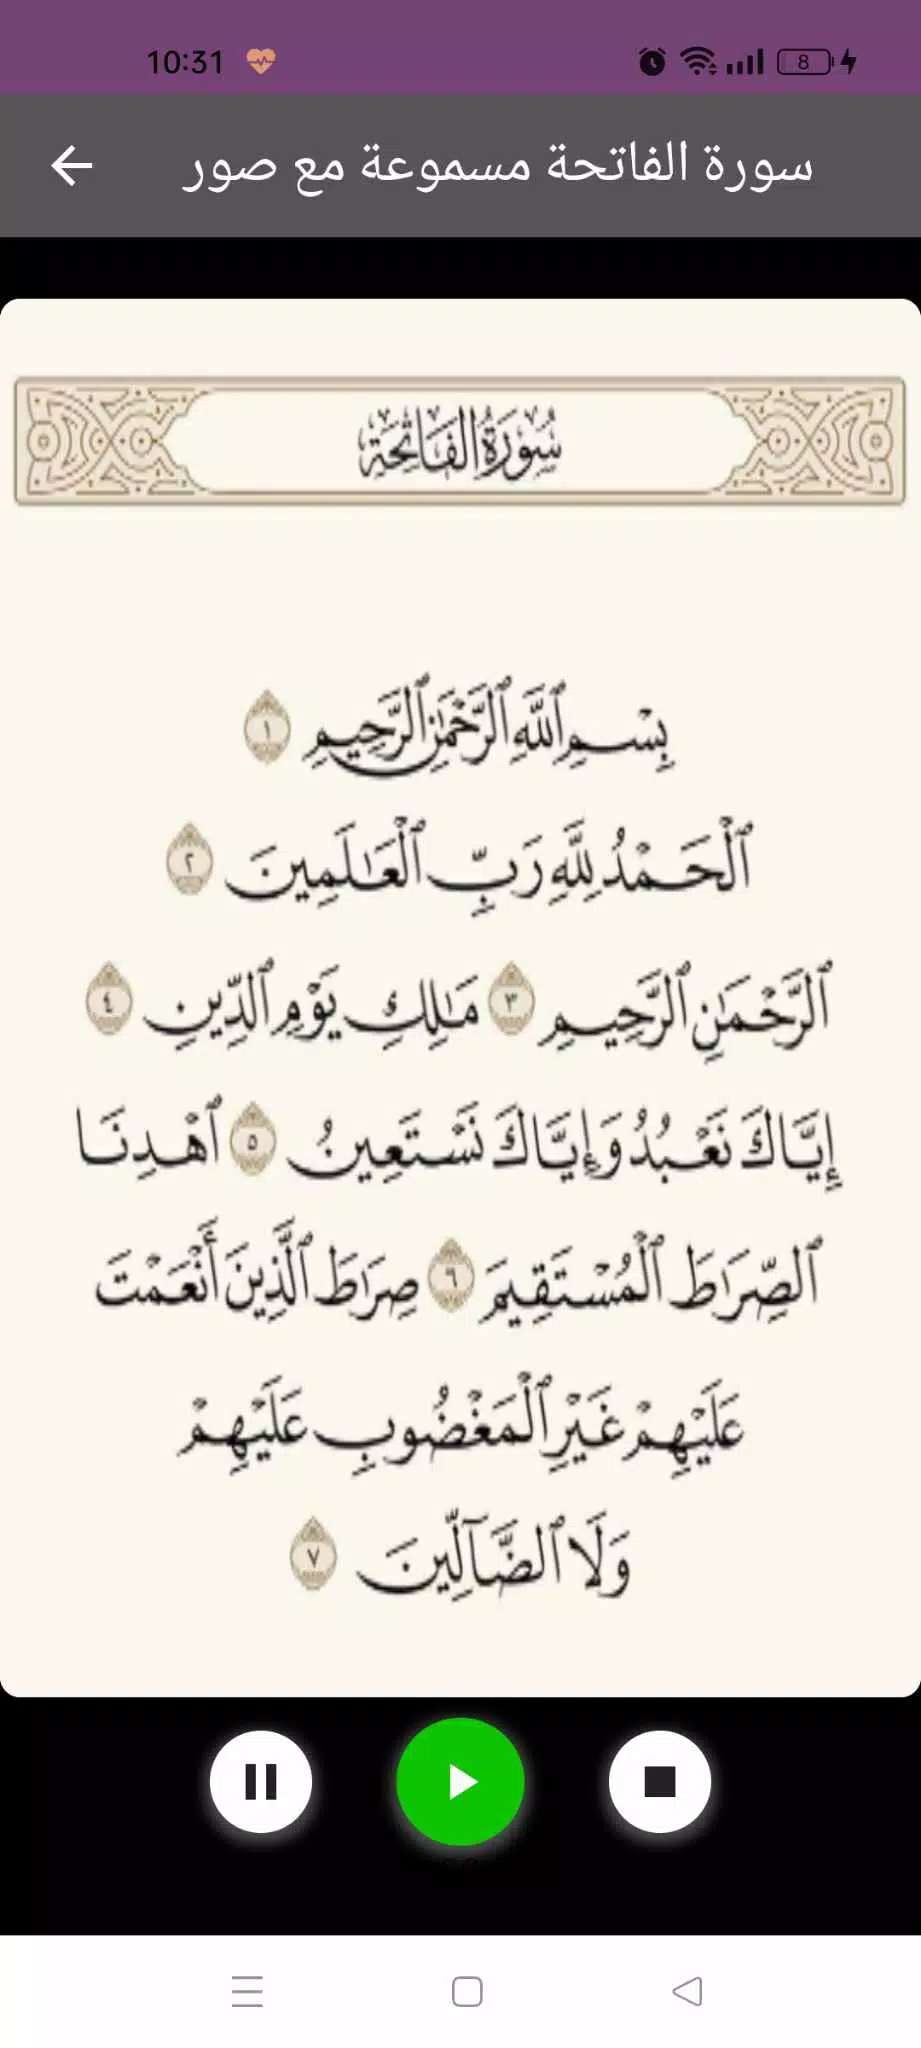 10:31
8
سورة الفاتحة مسموعة مع صور
سُورَةُ الفَاتِحَةِ
بِسْمِ ٱللَّهِ ٱلرَّحْمَٰنِ ٱلرَّحِيمِ ١
ٱلْحَمْدُ لِلَّهِ رَبِّ ٱلْعَٰلَمِينَ ٢
ٱلرَّحْمَٰنِ ٱلرَّحِيمِ ٣ مَٰلِكِ يَوْمِ ٱلدِّينِ ٤
إِيَّاكَ نَعْبُدُ وَإِيَّاكَ نَسْتَعِينُ ٥ ٱهْدِنَا
ٱلصِّرَٰطَ ٱلْمُسْتَقِيمَ ٦ صِرَٰطَ ٱلَّذِينَ أَنْعَمْتَ
عَلَيْهِمْ غَيْرِ ٱلْمَغْضُوبِ عَلَيْهِمْ
وَلَا ٱلضَّآلِّينَ ٧